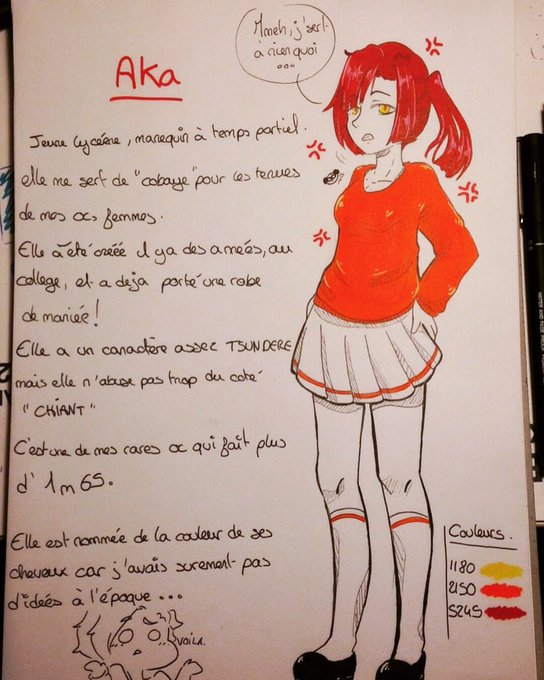 Mmeh, j'sert
à rien quoi
...
Aka
Jeune lycéène, manequin à temps partiel.
elle me sert de "cobaye" pour les tenues
de mes ocs femmes.
Elle à été créée il ya des années, au
college, et a deja porté une robe
de mariée!
Elle a un caractère assez TSUNDERE
mais elle n'abuse pas trop du coté
"CHIANT"
C'est une de mes rares oc qui fait plus
d'1m65.
Elle est nommée de la couleur de ses
cheveux car j'avais surement pas
d'idées à l'époque ...
VOILA.
Couleurs.
1180
2150
5245